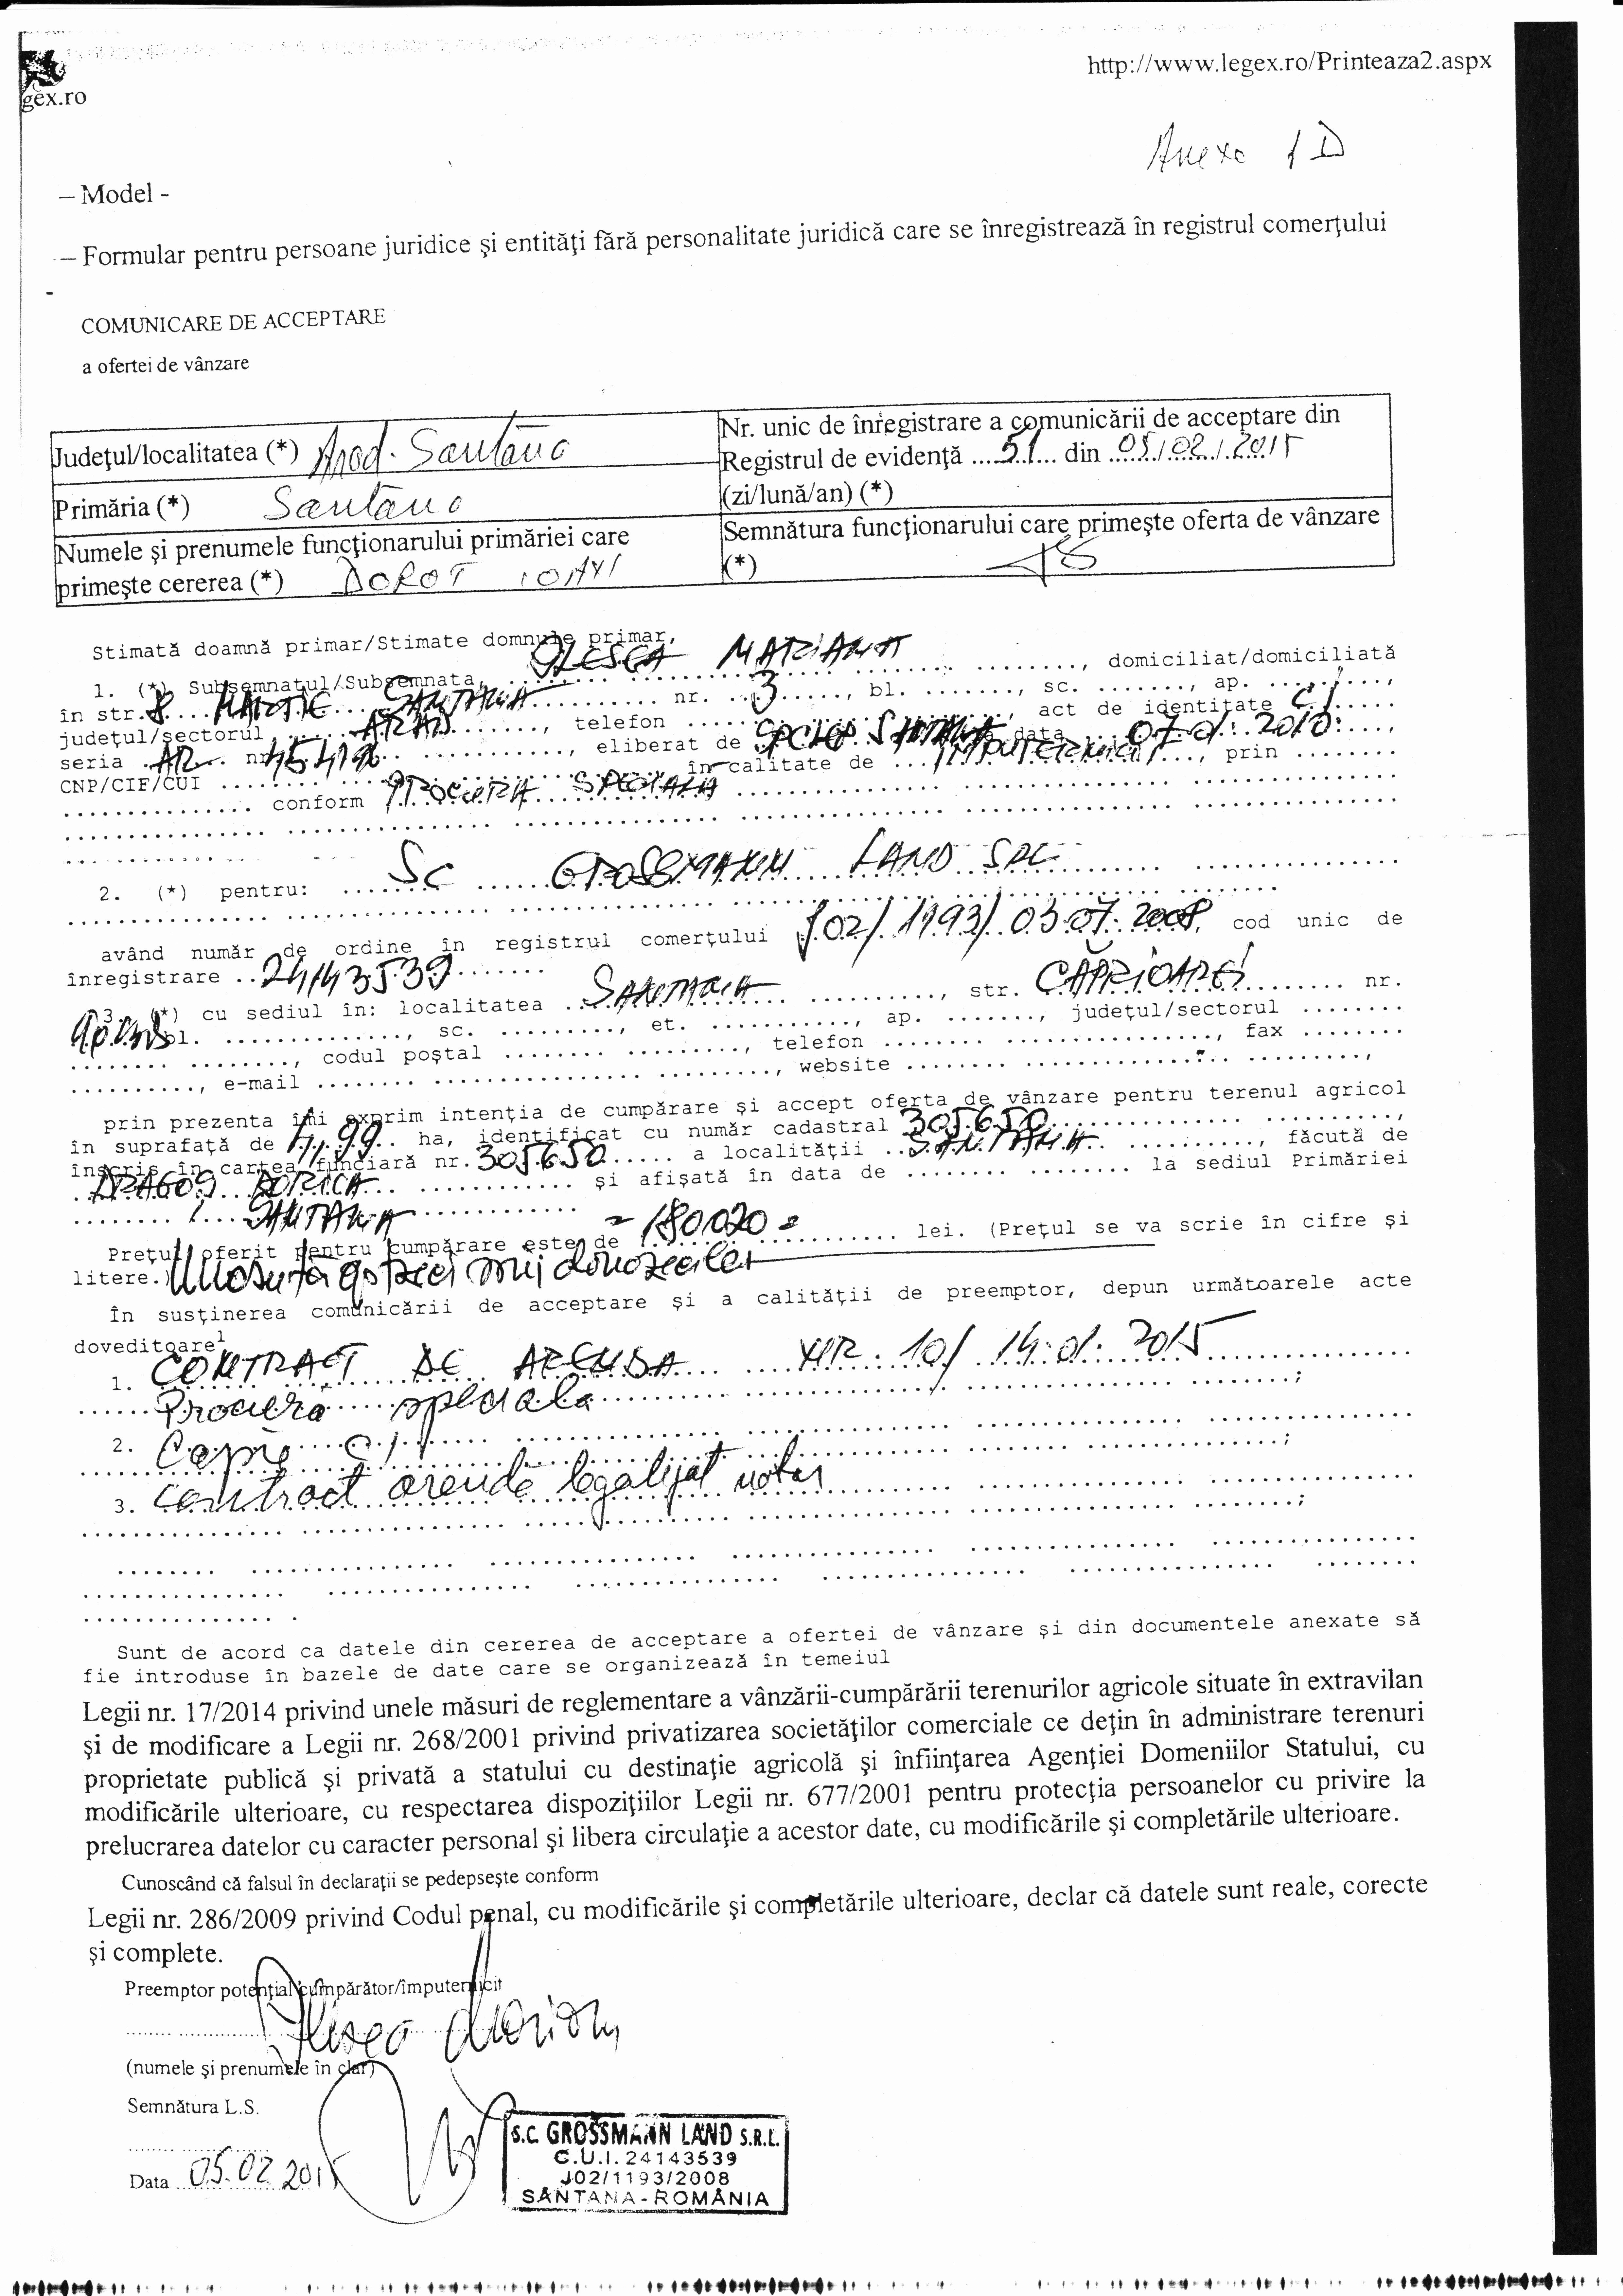 http://www.legex.ro/Printeaza2.aspx
gex.ro
Anexa 1D
– Model -
– Formular pentru persoane juridice şi entităţi fără personalitate juridică care se înregistrează în registrul comerţului
-
COMUNICARE DE ACCEPTARE
a ofertei de vânzare
Judeţul/localitatea (*) Arad. Santana
Nr. unic de înregistrare a comunicării de acceptare din
Registrul de evidenţă ....51.... din ..05./.02./.2015
(zi/lună/an) (*)
Primăria (*) Santana
Numele şi prenumele funcţionarului primăriei care
primeşte cererea (*) DOROT IOAN
Semnătura funcţionarului care primeşte oferta de vânzare
(*)
Stimată doamnă primar/Stimate domnule primar,
1. (*) Subsemnatul/Subsemnata, OLESEA MARIANA ........, domiciliat/domiciliată
în str. 8 MARTIE SANTANA nr. 3, bl. ......., sc. ......., ap. .........,
judeţul/sectorul ARAD, telefon ........, act de identitate CI
seria AR nr. , eliberat de SPCLEP SANTANA data 07.01.2010,
CNP/CIF/CUI ........ în calitate de ... IMPUTERNICIT, prin ........
conform PROCURA SPECIALA
2. (*) pentru: SC GROSSMANN LAND SRL
având număr de ordine în registrul comerţului J02/1193/03.07.2008, cod unic de
înregistrare ..24143539
3. (*) cu sediul în: localitatea ..SANTANA.., str. CĂPRIOAREI nr.
bl. ............., sc. ........., et. ..........., ap. ......., judeţul/sectorul ........
........, codul poştal ........ ........., telefon ........ ..............., fax ........
.........., e-mail ........ ............... ........., website ........ ............... .........,
prin prezenta îmi exprim intenţia de cumpărare şi accept oferta de vânzare pentru terenul agricol
în suprafaţă de ha, identificat cu număr cadastral 305650
înscris în cartea funciară nr. 305650 a localităţii ..SANTANA.., făcută de
DRAGOS DORICA şi afişată în data de ........ ........ la sediul Primăriei
SANTANA
Preţul oferit pentru cumpărare este de =180020= lei. (Preţul se va scrie în cifre şi
litere.) Unasuta optzeci mii douazecilei
În susţinerea comunicării de acceptare şi a calităţii de preemptor, depun următoarele acte
doveditoare1
1. CONTRACT DE ARENDA NR. 10/ 14.01.2015
Procura speciala
2. Copie CI
3. Contract arenda legalizat notar
Sunt de acord ca datele din cererea de acceptare a ofertei de vânzare şi din documentele anexate să
fie introduse în bazele de date care se organizează în temeiul
Legii nr. 17/2014 privind unele măsuri de reglementare a vânzării-cumpărării terenurilor agricole situate în extravilan
şi de modificare a Legii nr. 268/2001 privind privatizarea societăţilor comerciale ce deţin în administrare terenuri
proprietate publică şi privată a statului cu destinaţie agricolă şi înfiinţarea Agenţiei Domeniilor Statului, cu
modificările ulterioare, cu respectarea dispoziţiilor Legii nr. 677/2001 pentru protecţia persoanelor cu privire la
prelucrarea datelor cu caracter personal şi libera circulaţie a acestor date, cu modificările şi completările ulterioare.
Cunoscând că falsul în declaraţii se pedepseşte conform
Legii nr. 286/2009 privind Codul penal, cu modificările şi completările ulterioare, declar că datele sunt reale, corecte
şi complete.
Preemptor potenţial cumpărător/împuternicit
(numele şi prenumele în clar)
Semnătura L.S.
Data 05.02.2015
S.C. GROSSMANN LAND S.R.L.
C.U.I. 24143539
J02/1193/2008
SÂNTANA-ROMÂNIA